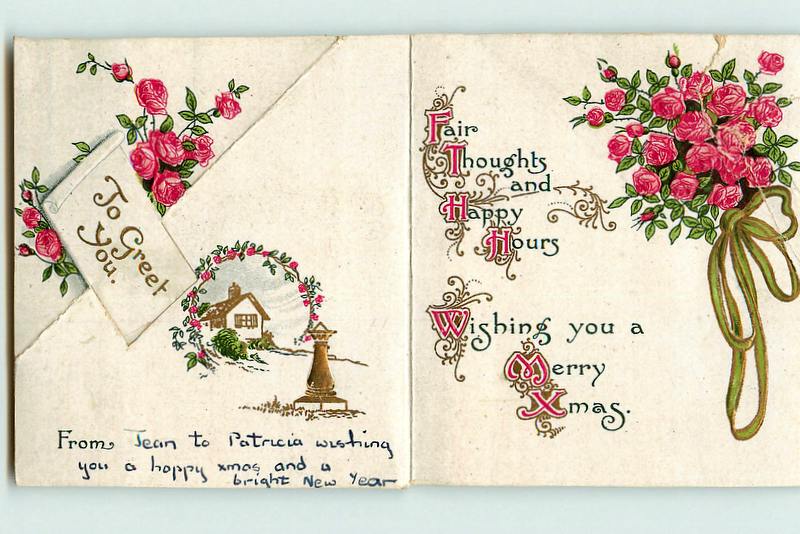 To Greet
You.
From Jean to Patricia wishing
you a happy xmas and a
bright New Year
Fair
Thoughts
and
Happy
Hours
Wishing you a
Merry
Xmas.